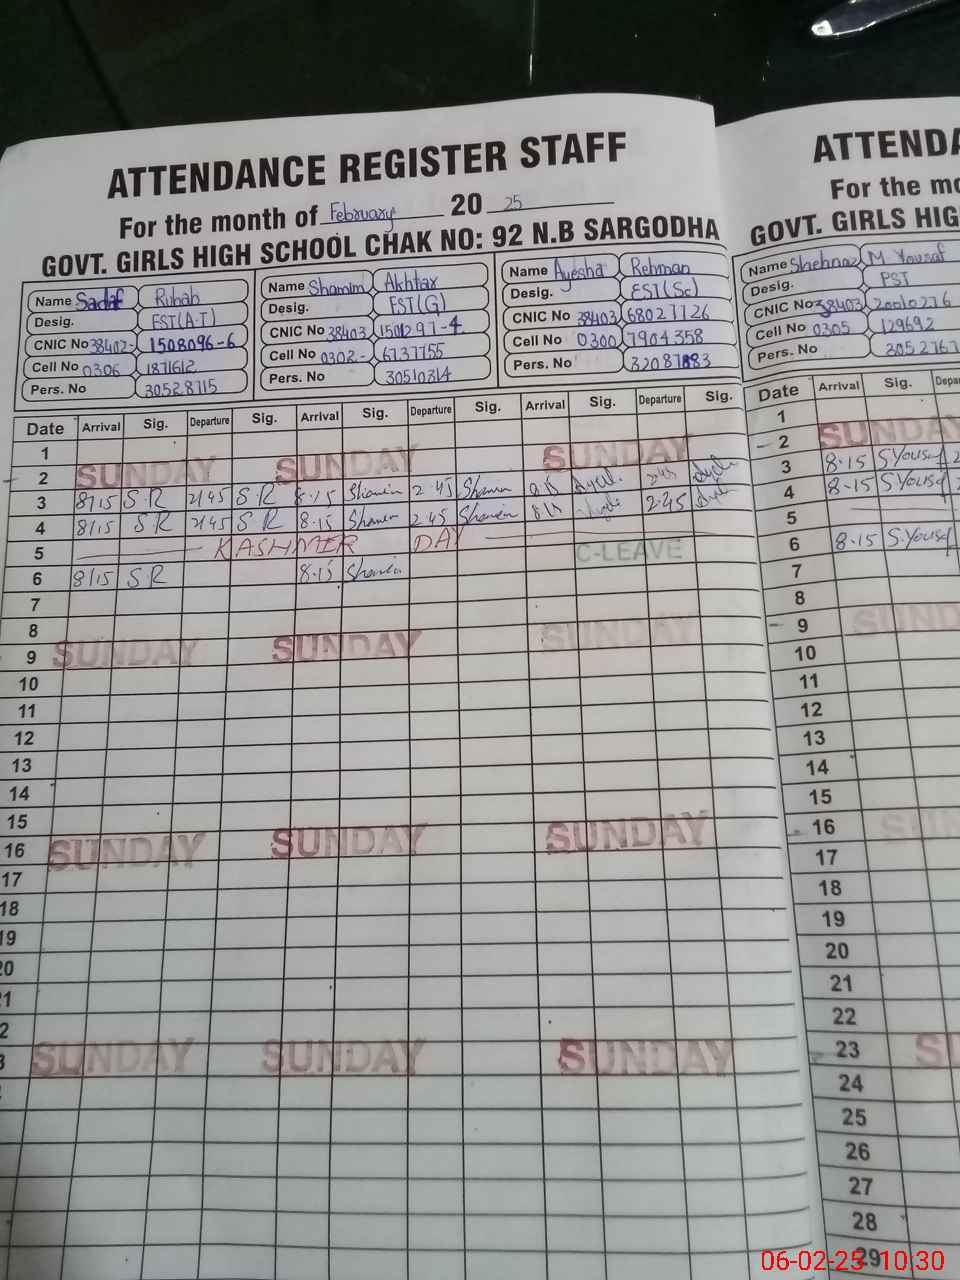 ATTENDANCE REGISTER STAFF
For the month of February 20 25
GOVT. GIRLS HIGH SCHOOL CHAK NO: 92 N.B SARGODHA
Name Sadaf Rubab
Desig. EST(A-T)
CNIC No 38402- 1508096-6
Cell No 0306 1871612
Pers. No 30528715
Name Shamim Akhtar
Desig. EST(G)
CNIC No 38403 1501297-4
Cell No 0302- 6737755
Pers. No 30510314
Name Ayesha Rehman
Desig. EST(Sc)
CNIC No 38403 68027726
Cell No 0300 7904358
Pers. No 32087883
Date Arrival Sig. Departure Sig. Arrival Sig. Departure Sig. Arrival Sig. Departure Sig.
1
2 SUNDAY SUNDAY SUNDAY
3 8/15 S R 2/45 S R 8.15 2.45 8.15 2.45
4 8/15 S R 2/45 S R 8.15 2.45 8.15 2.45
5 KASHMER DAY
6 8/15 S.R 8.15 C-LEAVE
7
8
9 SUNDAY SUNDAY SUNDAY
10
11
12
13
14
15
16 SUNDAY SUNDAY SUNDAY
17
18
19
20
SUNDAY SUNDAY SUNDAY
ATTENDA
For the mo
GOVT. GIRLS HIG
Name Shehnaz M Yousaf
Desig. PST
CNIC No 38403 20010276
Cell No 0305 129692
Pers. No 3052767
Date Arrival Sig. Depar
1
2 SUNDAY
3 8.15 S Yousaf 2
4 8.15 S Yousaf 2
5
6 8.15 S.Yousaf
7
8
9 SUNDAY
10
11
12
13
14
15
16 SUN
17
18
19
20
21
22
23 S
24
25
26
27
28
29
06-02-25 10:30